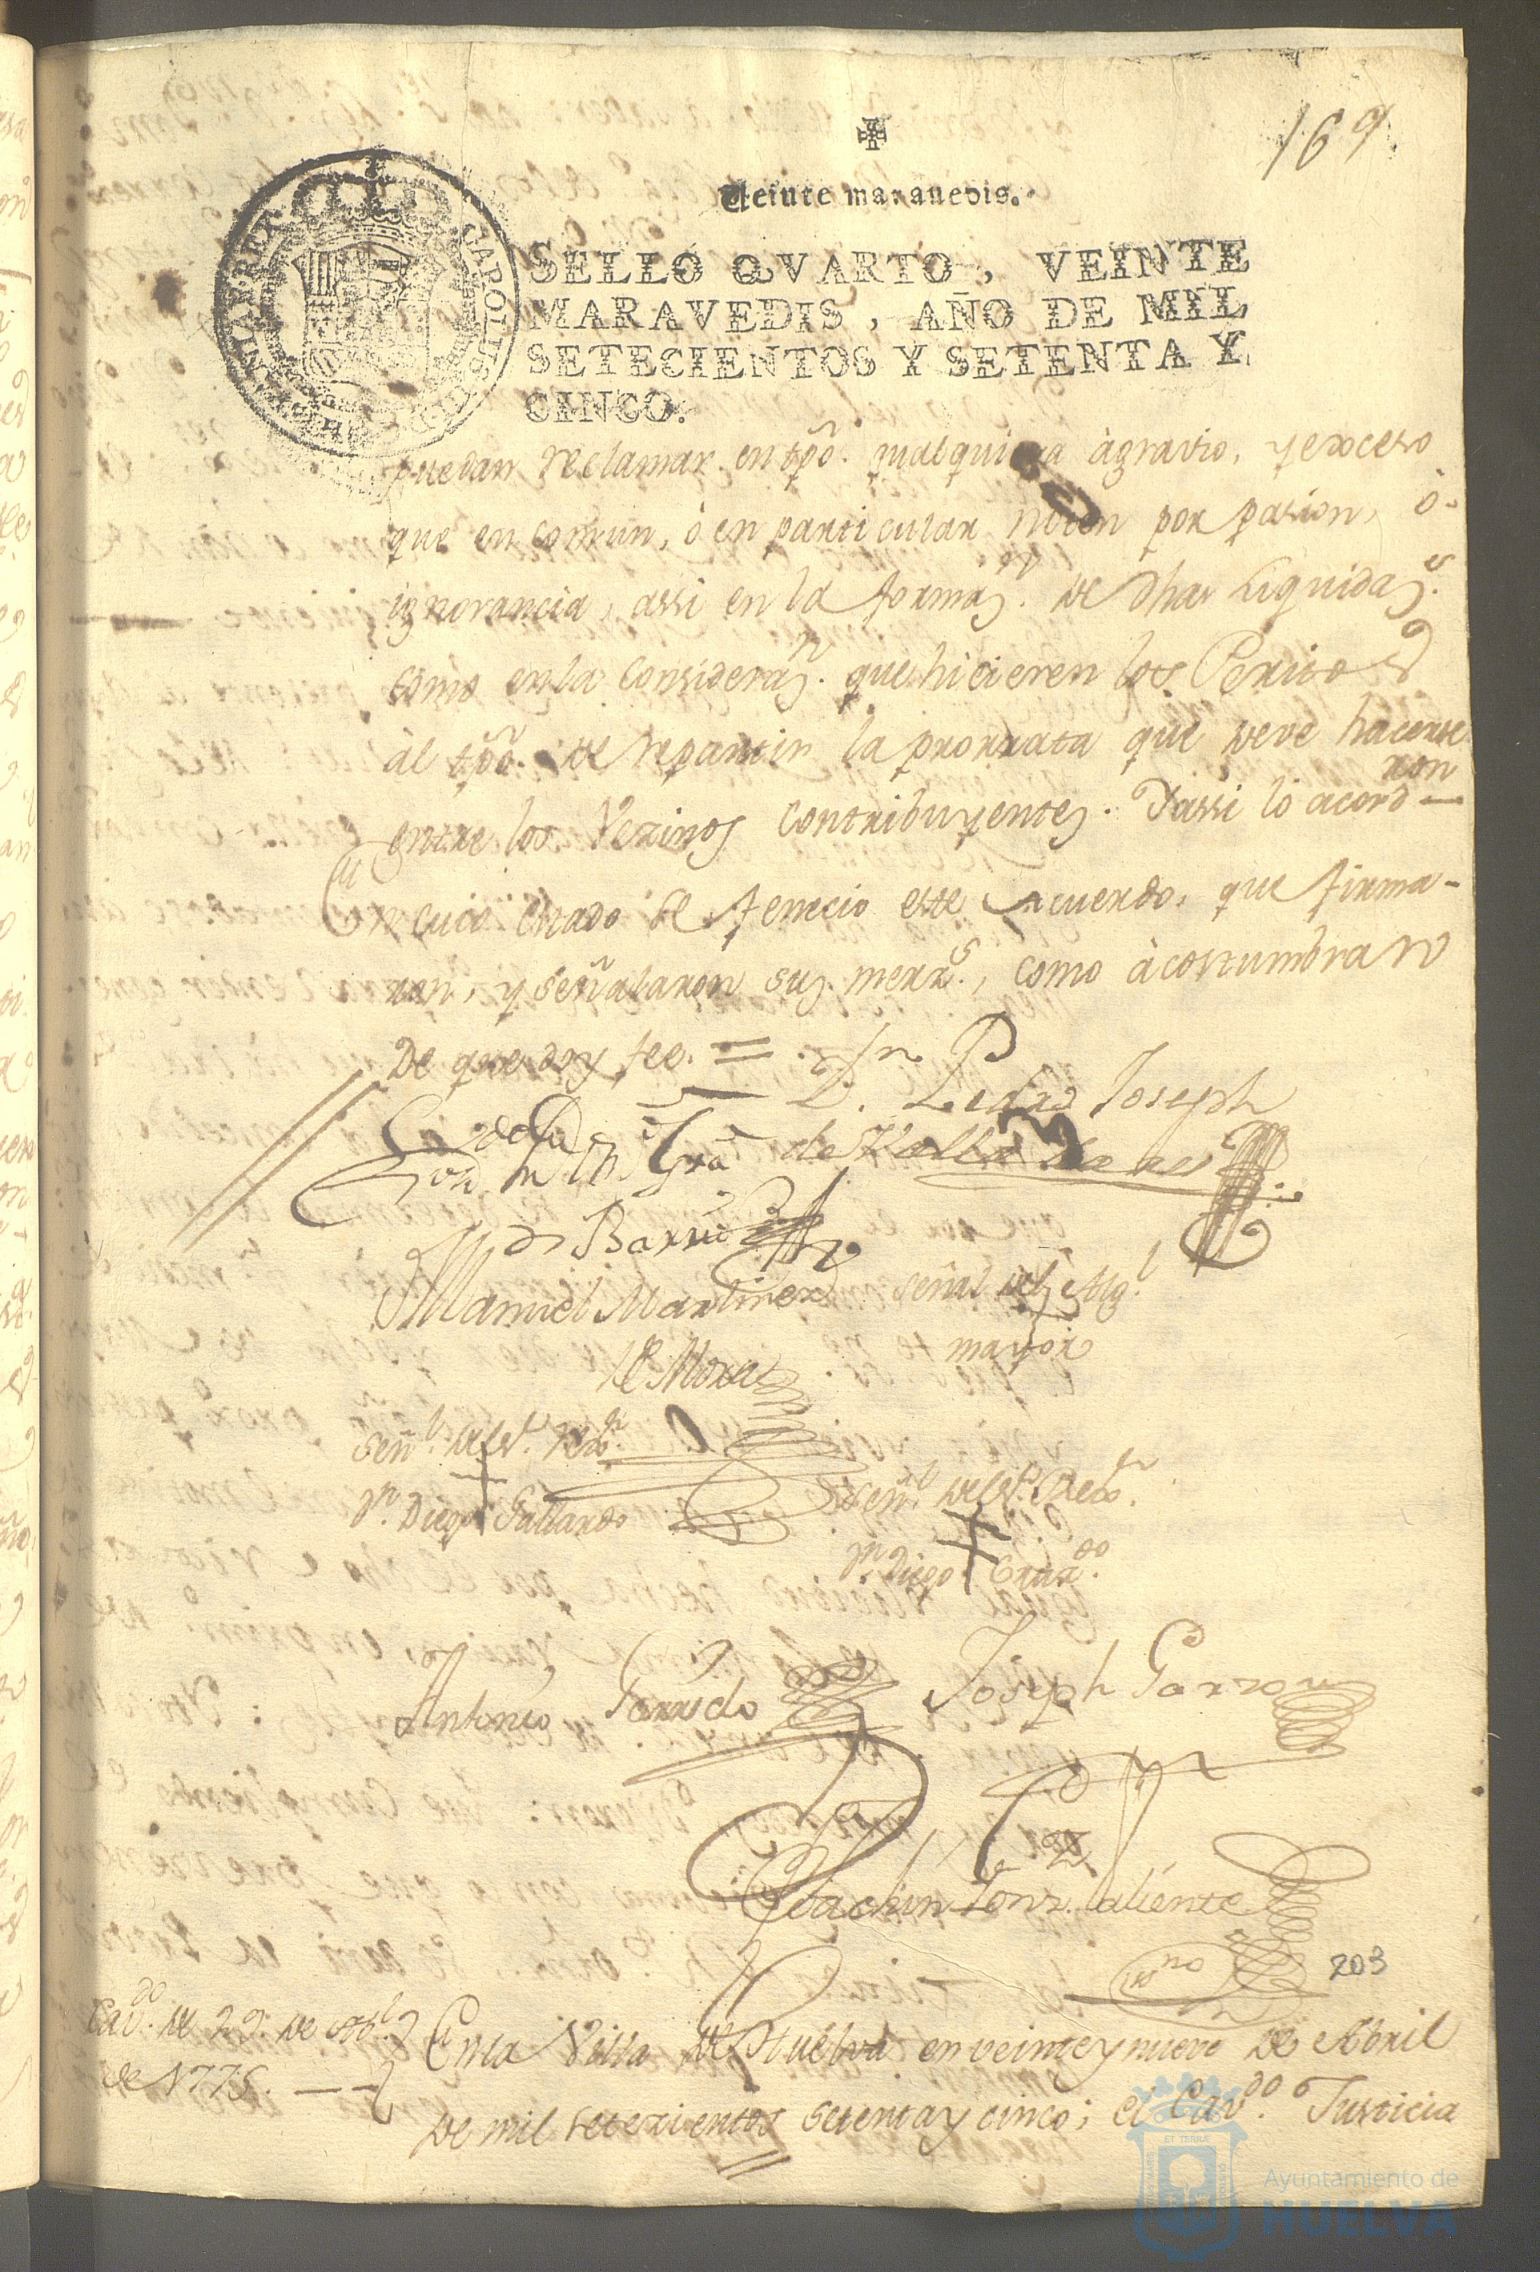 169
Veinte maravedis.
SELLO QVARTO, VEINTE
MARAVEDIS, AÑO DE MIL
SETECIENTOS Y SETENTA Y
CINCO.
CAROLUS
puedan reclamar en tpõ. qualquiera àgravio, y exceso
que en comun, ò en particular noten por pasion, ò
ignorancia, assi en la formaz.ⁿ de dhas Liquidaz.ˢ
como en la consideraz.ⁿ que hicieren los Peritos
àl tpõ. de repartir la prorrata que deve hacerse
entre los Vezinos Contribuyentes. Y assi lo acordaron
En cuio estado se feneció este Acuerdo, que firma-
ron, y señalaron sus merz.ˢ, como àcostumbran
De que doy fee. =
D.ⁿ Pedro Joseph
de Barrio
Manuel Martinez
de Mora
Señal de Mig.ˡ
mayor
Señ.ˡ del S.ʳ Rex.ʳ
D.ⁿ Diego Gallardo
Señ.ˡ del S.ʳ Rex.ʳ
D.ⁿ Diego
Antonio Garrido
Joseph Garzon
Joachin Gonz.ᶻ Caliente
ss.ⁿᵒ
203
Cav.ᵈᵒ de 29. de Abr.ˡ
de 1775.
En la Villa de Huelva en veinte y nueve de Abril
de mil setezientos setenta y cinco; el Cav.ᵈᵒ Justicia
Ayuntamiento de
HUELVA